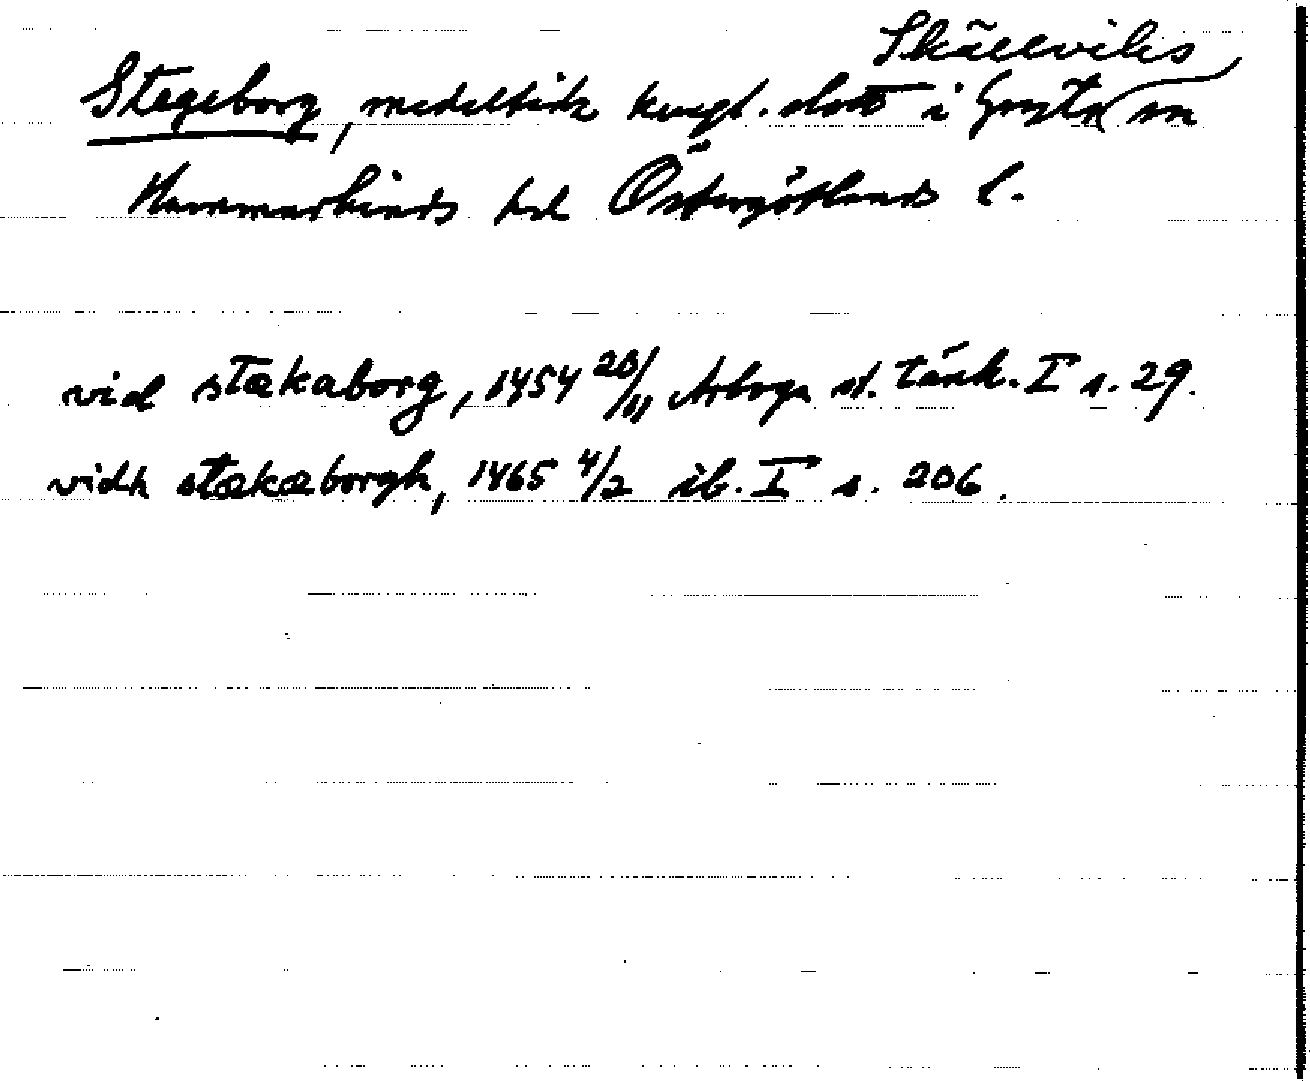 Skällviks
Stegeborg, medeltida kungl. slott i sn
Hammarkinds hd Östergötlands l.
vid stækaborg, 1454 20/11 Arboga st. tänk. I s. 29.
vidh stækæborgh, 1465 4/2 ib. I s. 206.